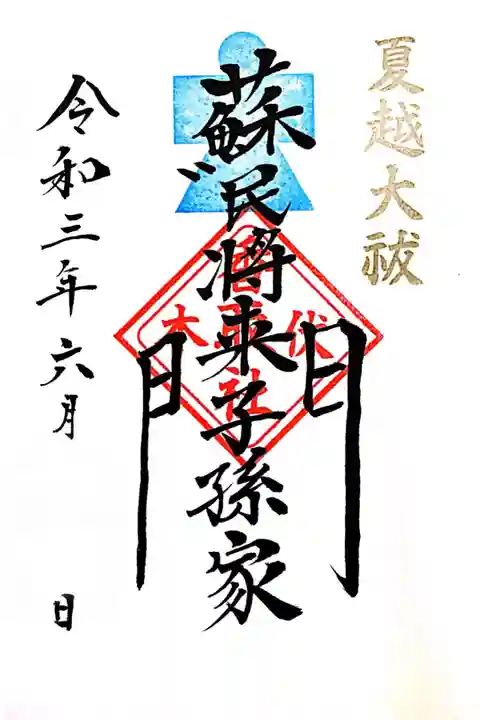 夏越大祓
蘇民将来子孫家門
令和三年六月 日